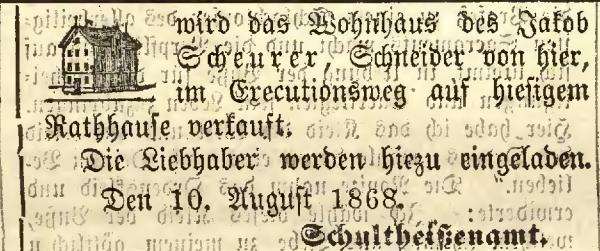 wird das Wohnhaus des Jakob
Scheurer, Schneider von hier,
im Executionsweg auf hiesigem
Rathhause verkauft.
Die Liebhaber werden hiezu eingeladen.
Den 10. August 1868.
Schultheißenamt.